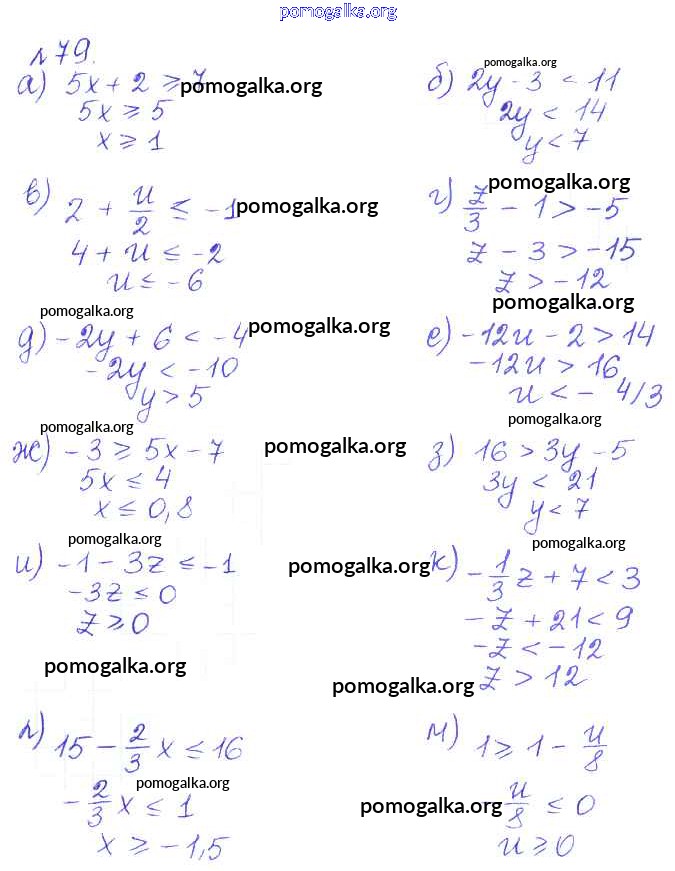 pomogalka.org
№79.
а) 5x + 2 ≥ 7 pomogalka.org
5x ≥ 5
x ≥ 1
pomogalka.org
б) 2y - 3 < 11
2y < 14
y < 7
в) 2 + u/2 ≤ -1 pomogalka.org
4 + u ≤ -2
u ≤ -6
pomogalka.org
г) z/3 - 1 > -5
z - 3 > -15
z > -12
pomogalka.org
pomogalka.org
д) -2y + 6 < -4 pomogalka.org
-2y < -10
y > 5
е) -12u - 2 > 14
-12u > 16
u < - 4/3
pomogalka.org
pomogalka.org
ж) -3 ≥ 5x - 7 pomogalka.org
5x ≤ 4
x ≤ 0,8
з) 16 > 3y - 5
3y < 21
y < 7
pomogalka.org
pomogalka.org
и) -1 - 3z ≤ -1 pomogalka.org
-3z ≤ 0
z ≥ 0
к) -1/3 z + 7 < 3
-z + 21 < 9
-z < -12
z > 12
pomogalka.org
pomogalka.org
л) 15 - 2/3 x ≤ 16
pomogalka.org
-2/3 x ≤ 1
x ≥ -1,5
м) 1 ≥ 1 - u/8
pomogalka.org u/8 ≤ 0
u ≥ 0